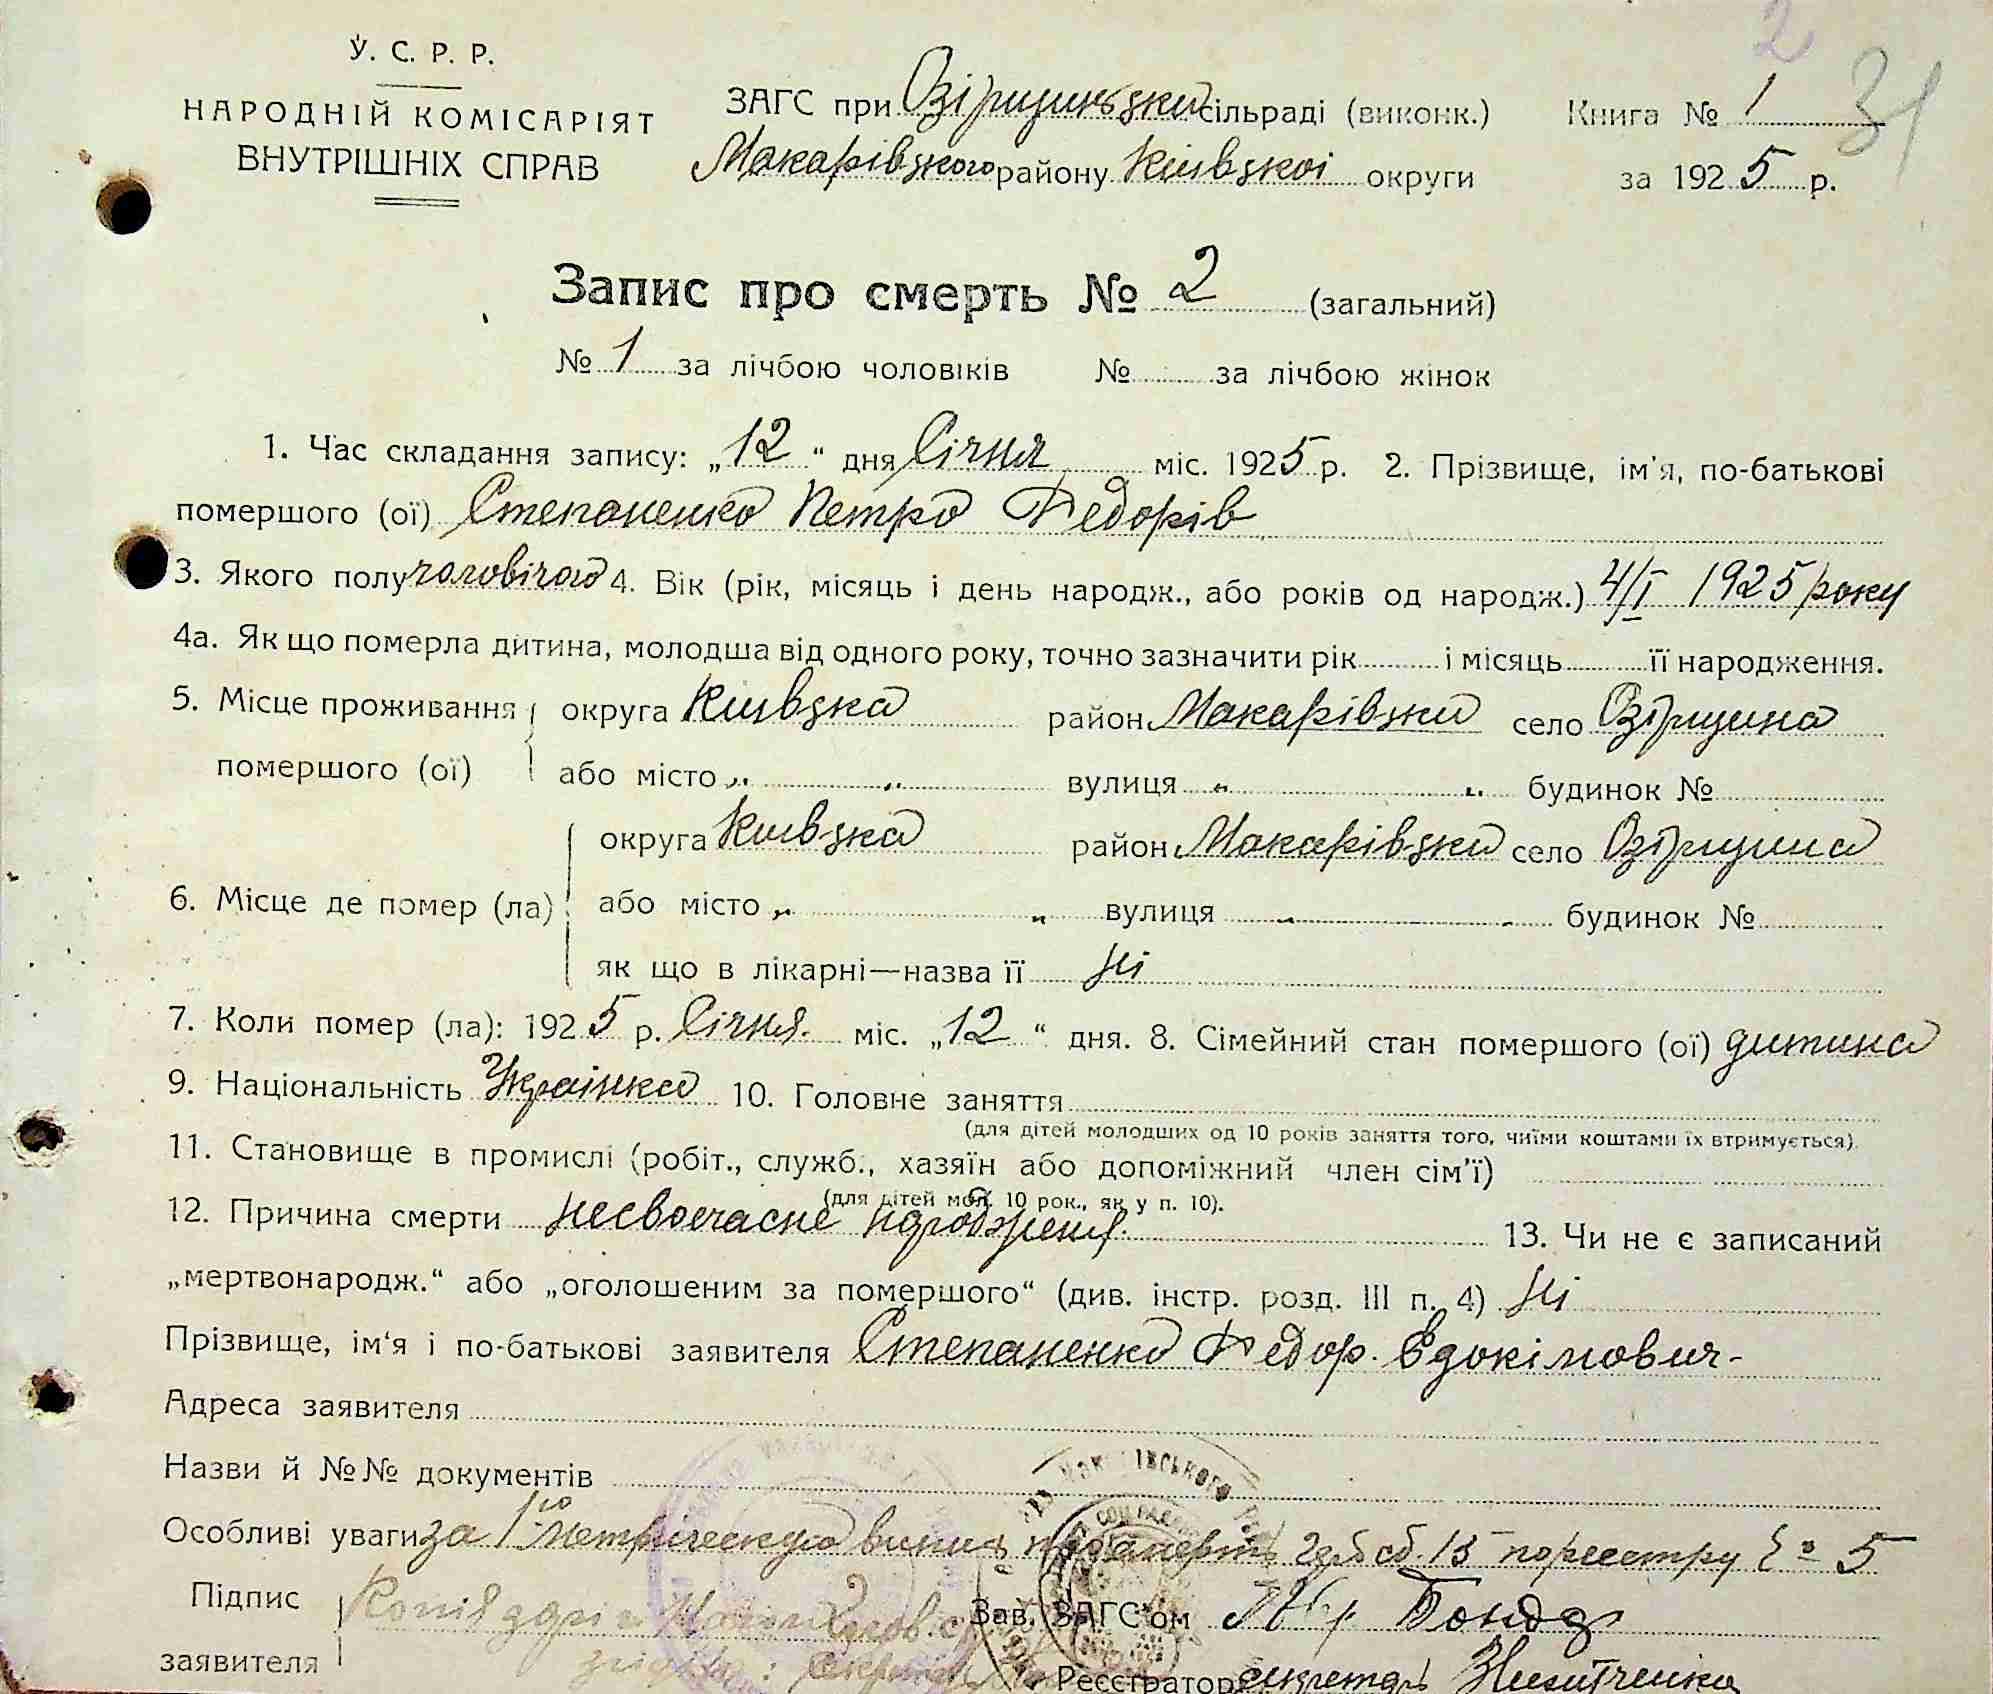 2
У. С. Р. Р.
НАРОДНІЙ КОМІСАРІЯТ
ВНУТРІШНІХ СПРАВ
ЗАГС при Озірщиньски сільраді (виконк.)
Макарівzкого району Київzкоі округи
Книга № 1
31
за 1925 р.
Запис про смерть № 2 (загальний)
№ 1 за лічбою чоловіків № за лічбою жінок
1. Час складання запису: „12“ дня Січня міс. 1925 р. 2. Прізвище, ім'я, по-батькові
помершого (ої) Степаненко Петро Федорів
3. Якого полу чоловічого 4. Вік (рік, місяць і день народж., або років од народж.) 4/I 1925 року
4а. Як що померла дитина, молодша від одного року, точно зазначити рік і місяць її народження.
5. Місце проживання округа Київзка район Макарівзки село Озірщина
помершого (ої) або місто „ „ вулиця „ „ будинок №
округа Київзка район Макарівзки село Озірщина
6. Місце де помер (ла) або місто „ „ вулиця „ „ будинок №
як що в лікарні—назва її Ні
7. Коли помер (ла): 1925 р. Січня. міс. „12“ дня. 8. Сімейний стан помершого (ої) дитина
9. Національність Українка 10. Головне заняття
(для дітей молодших од 10 років заняття того, чиїми коштами їх втримується).
11. Становище в промислі (робіт., служб., хазяїн або допоміжний член сім'ї)
(для дітей мол. 10 рок., як у п. 10).
12. Причина смерти несвоечасне народженя. 13. Чи не є записаний
„мертвонародж.“ або „оголошеним за помершого“ (див. інстр. розд. III п. 4) Ні
Прізвище, ім'я і по-батькові заявителя Степаненко Федор. Євдокімович-
Адреса заявителя
Назви й №№ документів
Особливі уваги за 1ю метрическую сб. 15 по реестру № 5
Підпис Копія Зав. ЗАГС'ом Бондар
заявителя Реєстратор секретарь